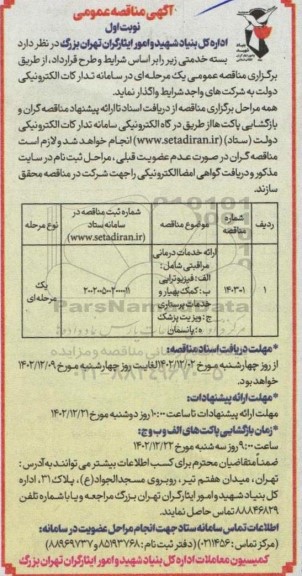 آگهی مناقصه عمومی
نوبت اول
اداره کل بنیاد شهید و امور ایثارگران تهران بزرگ در نظر دارد
بسته خدمتی زیر را بر اساس شرایط و طرح قرارداد، از طریق
برگزاری مناقصه عمومی یک مرحله‌ای در سامانه تدارکات الکترونیکی
دولت به شرکت های واجد شرایط واگذار نماید.
همه مراحل برگزاری مناقصه از دریافت اسناد تا ارائه پیشنهاد مناقصه گران و
بازگشایی پاکت ها از طریق درگاه الکترونیکی سامانه تدارکات الکترونیکی
دولت (ستاد) (www.setadiran.ir) انجام خواهد شد و لازم است
مناقصه گران در صورت عدم عضویت قبلی، مراحل ثبت نام در سایت
مذکور و دریافت گواهی امضا الکترونیکی را جهت شرکت در مناقصه محقق
سازند.
ردیف
شماره مناقصه
موضوع مناقصه
شماره ثبت مناقصه در سامانه ستاد (www.setadiran.ir)
نوع مرحله
۱
۱۴۰۳-۰۱
ارائه خدمات درمانی
مراقبتی شامل:
الف: فیزیوتراپی
ب: کمک بهیار و
خدمات پرستاری
ج: ویزیت پزشک
و: پانسمان
یک
مرحله ای
*مهلت دریافت اسناد مناقصه:
از روز چهارشنبه مورخ ۱۴۰۲/۱۲/۰۲ لغایت روز چهارشنبه مورخ ۱۴۰۲/۱۲/۰۹
خواهد بود.
*مهلت ارائه پیشنهادات:
مهلت ارائه پیشنهادات تا ساعت ۱۰:۰۰ روز دوشنبه مورخ ۱۴۰۲/۱۲/۲۱
*زمان بازگشایی پاکت های الف و ب و ج:
ساعت ۹:۰۰ روز سه شنبه مورخ ۱۴۰۲/۱۲/۲۲
ضمناً متقاضیان محترم برای کسب اطلاعات بیشتر می توانند به آدرس:
تهران، میدان هفتم تیر، روبروی مسجد الجواد(ع)، پلاک ۳۱، اداره
کل بنیاد شهید و امور ایثارگران تهران بزرگ مراجعه و یا با شماره تلفن
۸۸۸۴۶۸۲۹ تماس حاصل نمایند.
اطلاعات تماس سامانه ستاد جهت انجام مراحل عضویت در سامانه:
(مرکز تماس: ۰۲۱۱۴۵۶) (دفتر ثبت نام: ۸۵۱۹۳۷۶۸ و ۸۸۹۶۹۷۳۷)
کمیسیون معاملات اداره کل بنیاد شهید و امور ایثارگران تهران بزرگ